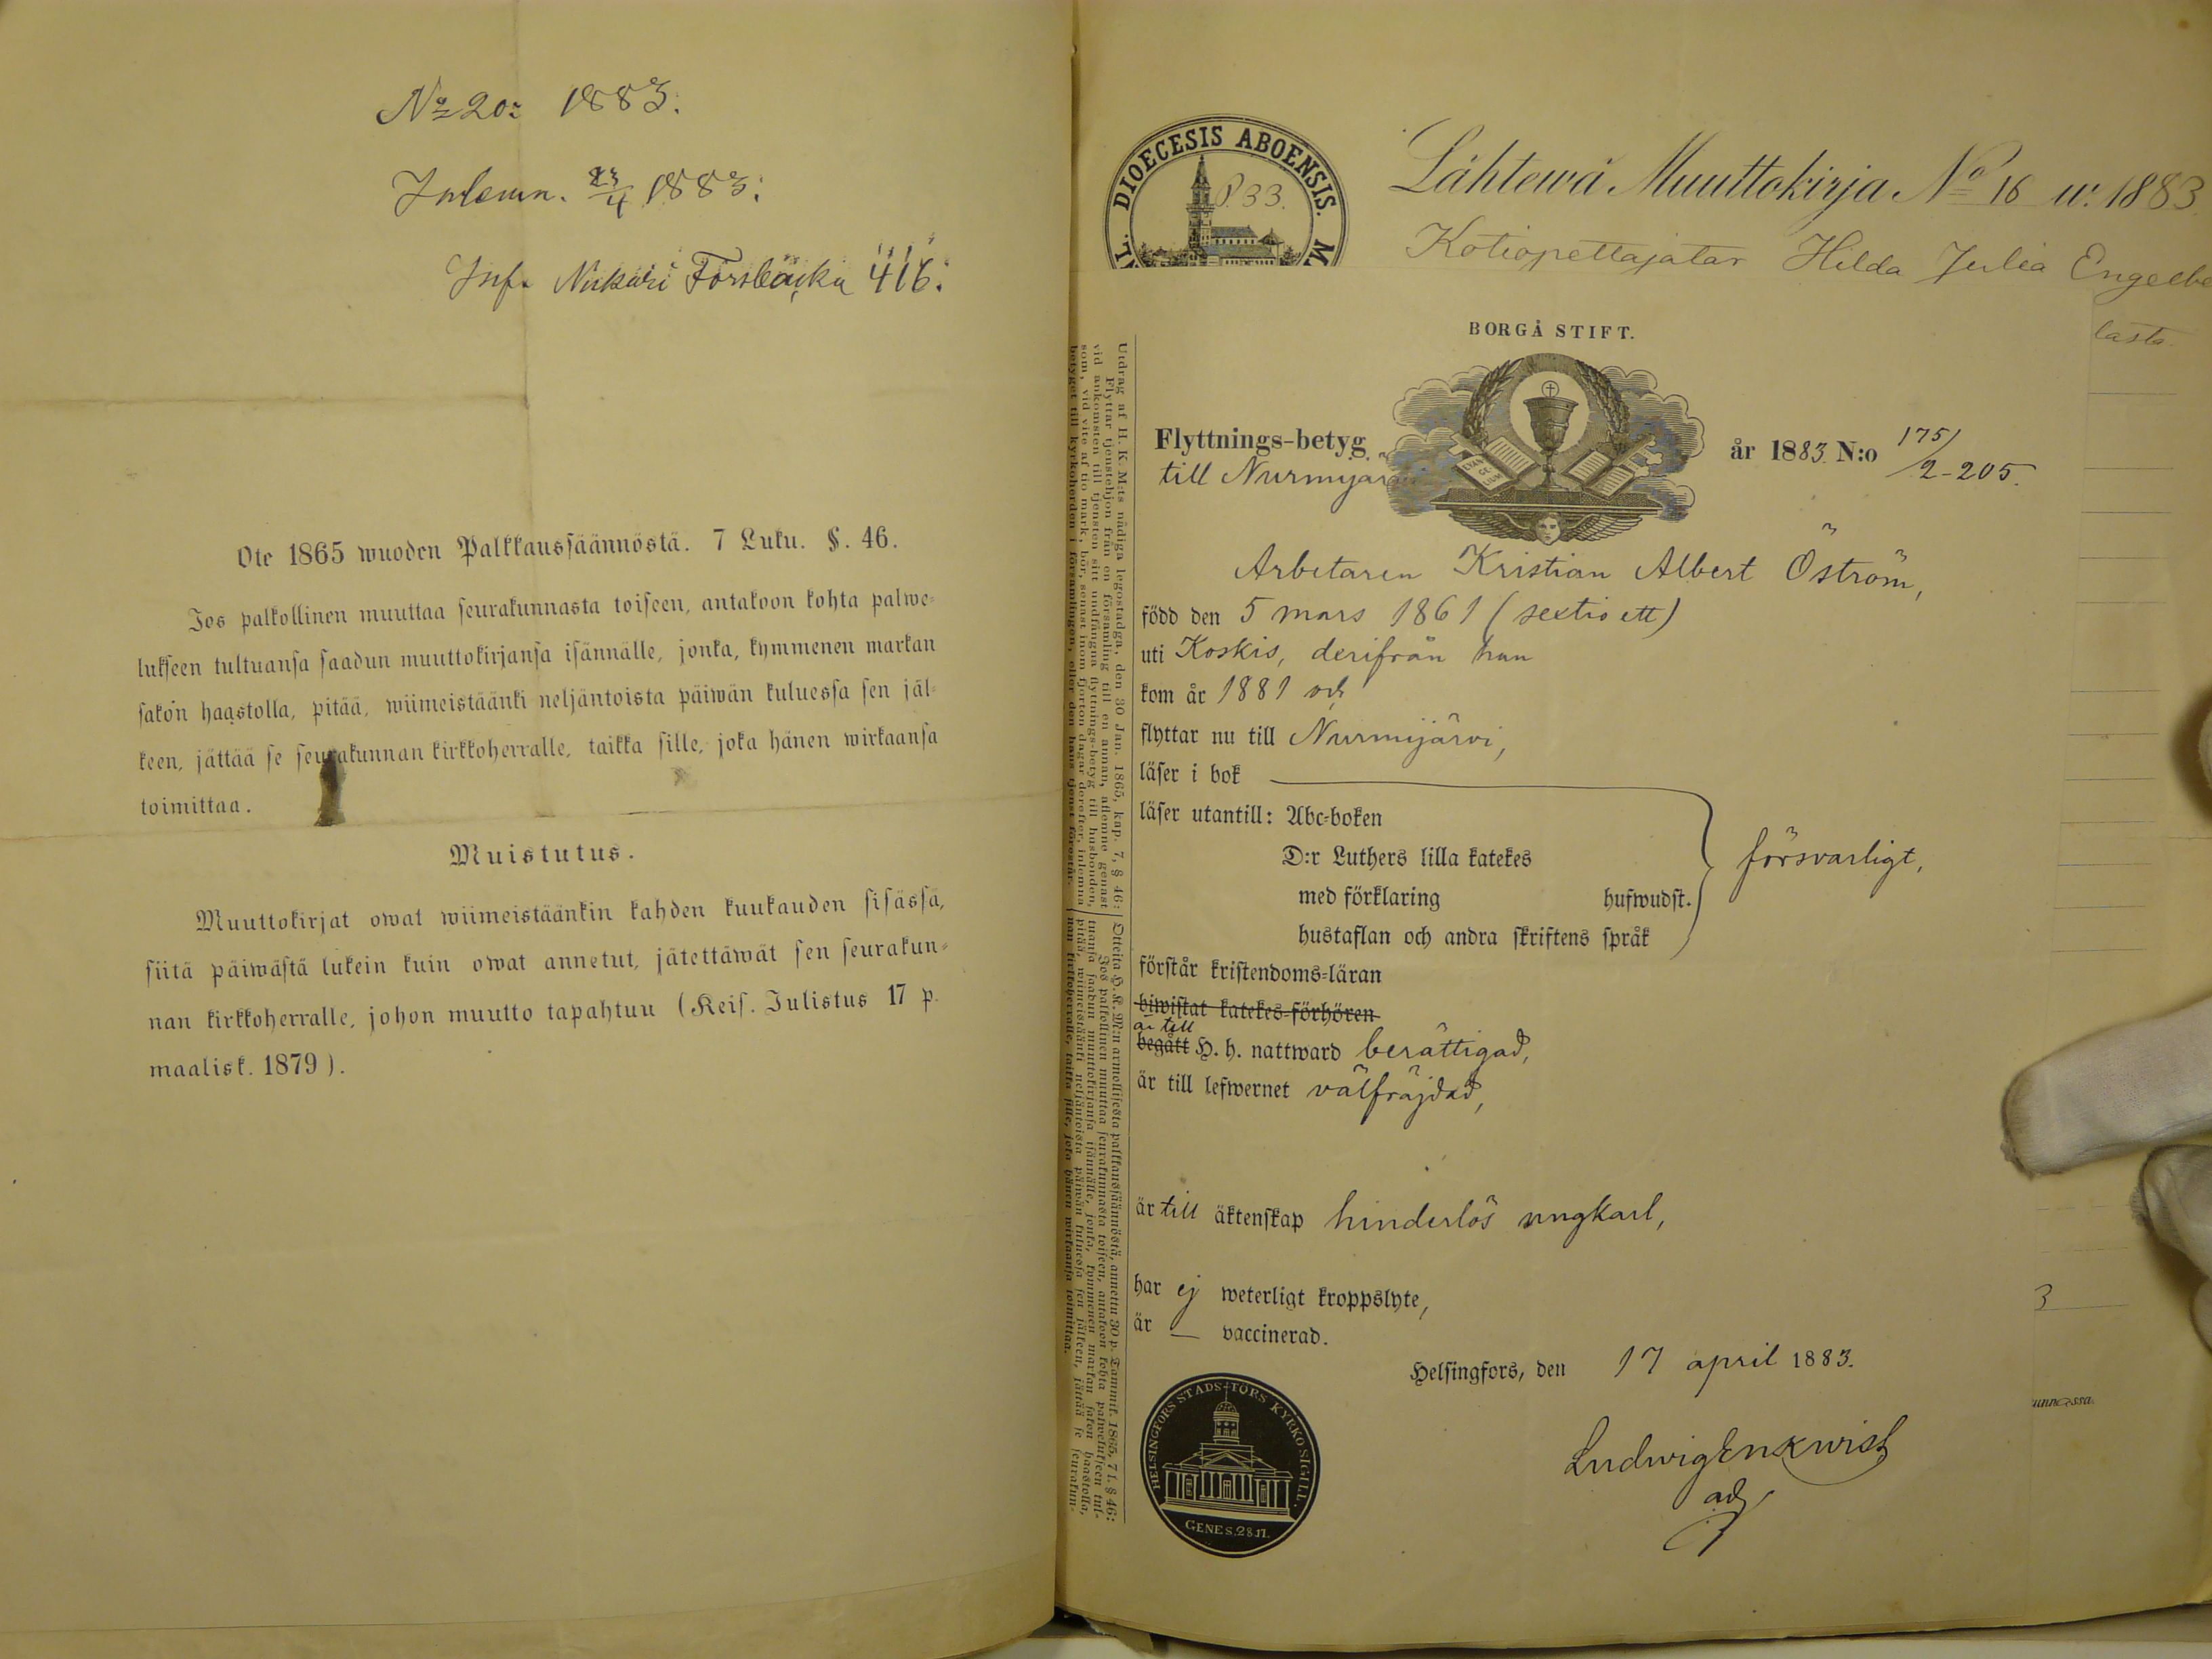 No 20: 1883.
Inlemn. 23/4 1883:
Inf. Nukari Forsbacka 416:
Ote 1865 wuoden Palkkaussäännöstä. 7 Luku. §. 46.
Jos palkollinen muuttaa seurakunnasta toiseen, antakoon kohta palwe-
lukseen tultuansa saadun muuttokirjansa isännälle, jonka, kymmenen markan
sakon haastolla, pitää, wiimeistäänki neljäntoista päiwän kuluessa sen jäl-
keen, jättää se seurakunnan kirkkoherralle, taikka sille, joka hänen wirkaansa
toimittaa.
Muistutus.
Muuttokirjat owat wiimeistäänkin kahden kuukauden sisässä,
siitä päiwästä lukein kuin owat annetut, jätettäwät sen seurakun-
nan kirkkoherralle, johon muutto tapahtuu (Keis. Julistus 17 p.
maalisk. 1879).
DIOECESIS ABOENSIS.
S. 33.
Lähtewä Muuttokirja No 16 w. 1883
Kotiopettajatar Hilda Julia Engelbe
lasta.
BORGÅ STIFT.
Flyttnings-betyg
år 1883 N:o 175/2-205.
till Nurmijärvi
EVAN GE LIUM
Arbetaren Kristian Albert Öström,
född den 5 mars 1861 (sextio ett)
uti Koskis, derifrån han
kom år 1881 och
flyttar nu till Nurmijärvi,
läser i bok
läser utantill: Abc-boken
D:r Luthers lilla katekes
med förklaring hufwudst.
försvarligt,
hustaflan och andra skriftens språk
förstår kristendoms-läran
biwistat katekes-förhören
är till
begått H. h. nattward berättigad,
är till lefwernet välfräjdad,
är till äktenskap hinderlös ungkarl,
har ej weterligt kroppslyte,
är — vaccinerad.
Helsingfors, den 17 april 1883.
Ludwig Enkwist
adj.
HELSINGFORS STADS-FÖRS KYRKO SIGILL.
GENES. 28.17.
Utdrag af H. K. M:ts nådiga legostadga, den 30 Jan. 1865, kap. 7, § 46:
Flyttar tjenstehjon från en församling till en annan, aflemne genast
vid ankomsten till tjensten sitt undfångna flyttnings-betyg till husbonden,
som, vid vite af tio mark, bör, senast inom fjorton dagar derefter, inlemna
betyget till kyrkoherden i församlingen, eller den hans tjenst förestår.
Otteita H. K. M:n armollisesta palkkaussäännöstä, annettu 30 p. Tammik. 1865, 7 l. § 46:
Jos palkollinen muuttaa seurakunnasta toiseen, antakoon kohta palwelukseen tul-
tuansa saadun muuttokirjansa isännälle, jonka, kymmenen markan sakon haastolla,
pitää, wiimeistäänki neljäntoista päiwän kuluessa sen jälkeen, jättää se seurakun-
nan kirkkoherralle, taikka sille, joka hänen wirkaansa toimittaa.
3
unnassa.